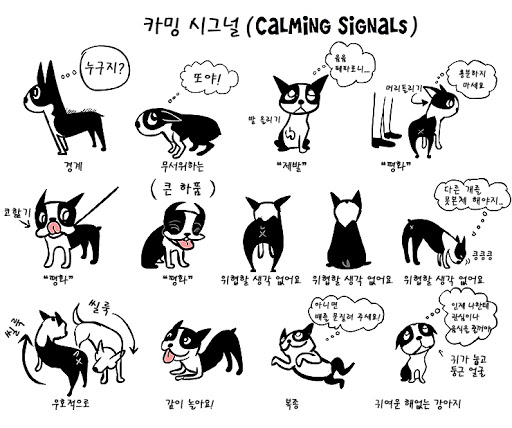 카밍 시그널 (CALMING SIGNALS)
누구지?
경계
또야!
무서워하는
음음
페파로니...
발 올리기
"제발"
흥분하지
마세요
머리돌리기
"평화"
코핥기
"평화"
(큰 하품)
"평화"
위협할 생각 없어요
위협할 생각 없어요
다른 개를
못본체 해야지...
킁킁킁
위협할 생각 없어요
씰룩
씰룩
우호적으로
같이 놀아요!
아니면
배를 문질러 주세요!
복종
언제 나한테
관심이나
음식을 줄꺼야
귀가 눕고
둥근 얼굴
귀여운 해없는 강아지